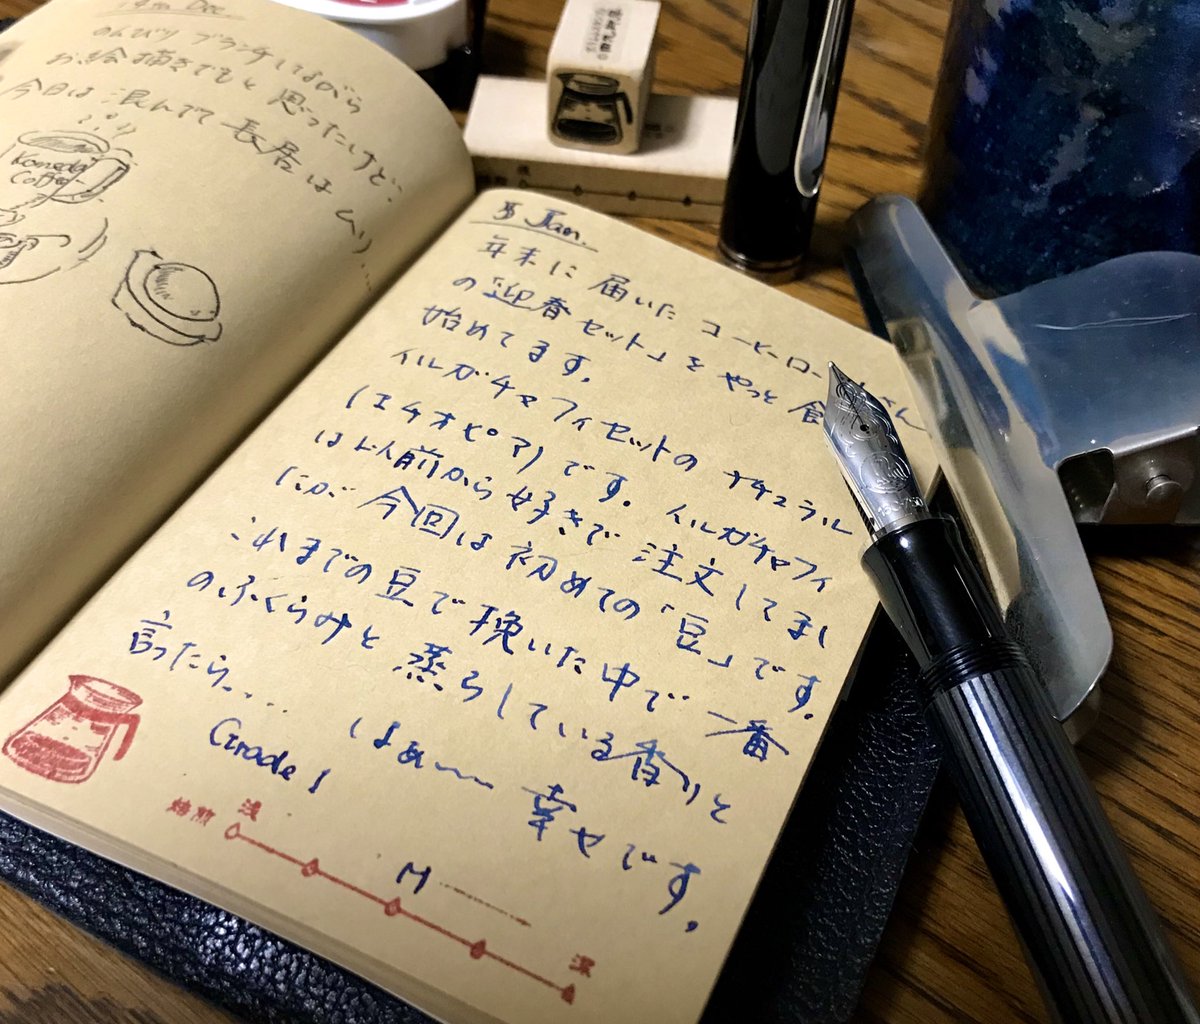 14th Dec.
のんびり ブランチしながら
お絵描きでもと 思ったけど、
今日は 混んでて 長居は ムリ
Komeda
Coffee
5 Jan.
年末に 届いた コーヒーロー さん
の「迎春セット」を やっと
始めてます。
イルガチャフィセットの ナチュラル
(エチオピア)です。イルガチャフィ
は以前から 好きで 注文してまし
たが 今回は 初めての「豆」です。
これまでの 豆で 挽いた中で 一番
のふくらみと 蒸らしている香りと
言ったら... はぁ〜〜 幸せです。
Grade 1
焙煎 浅
M
深